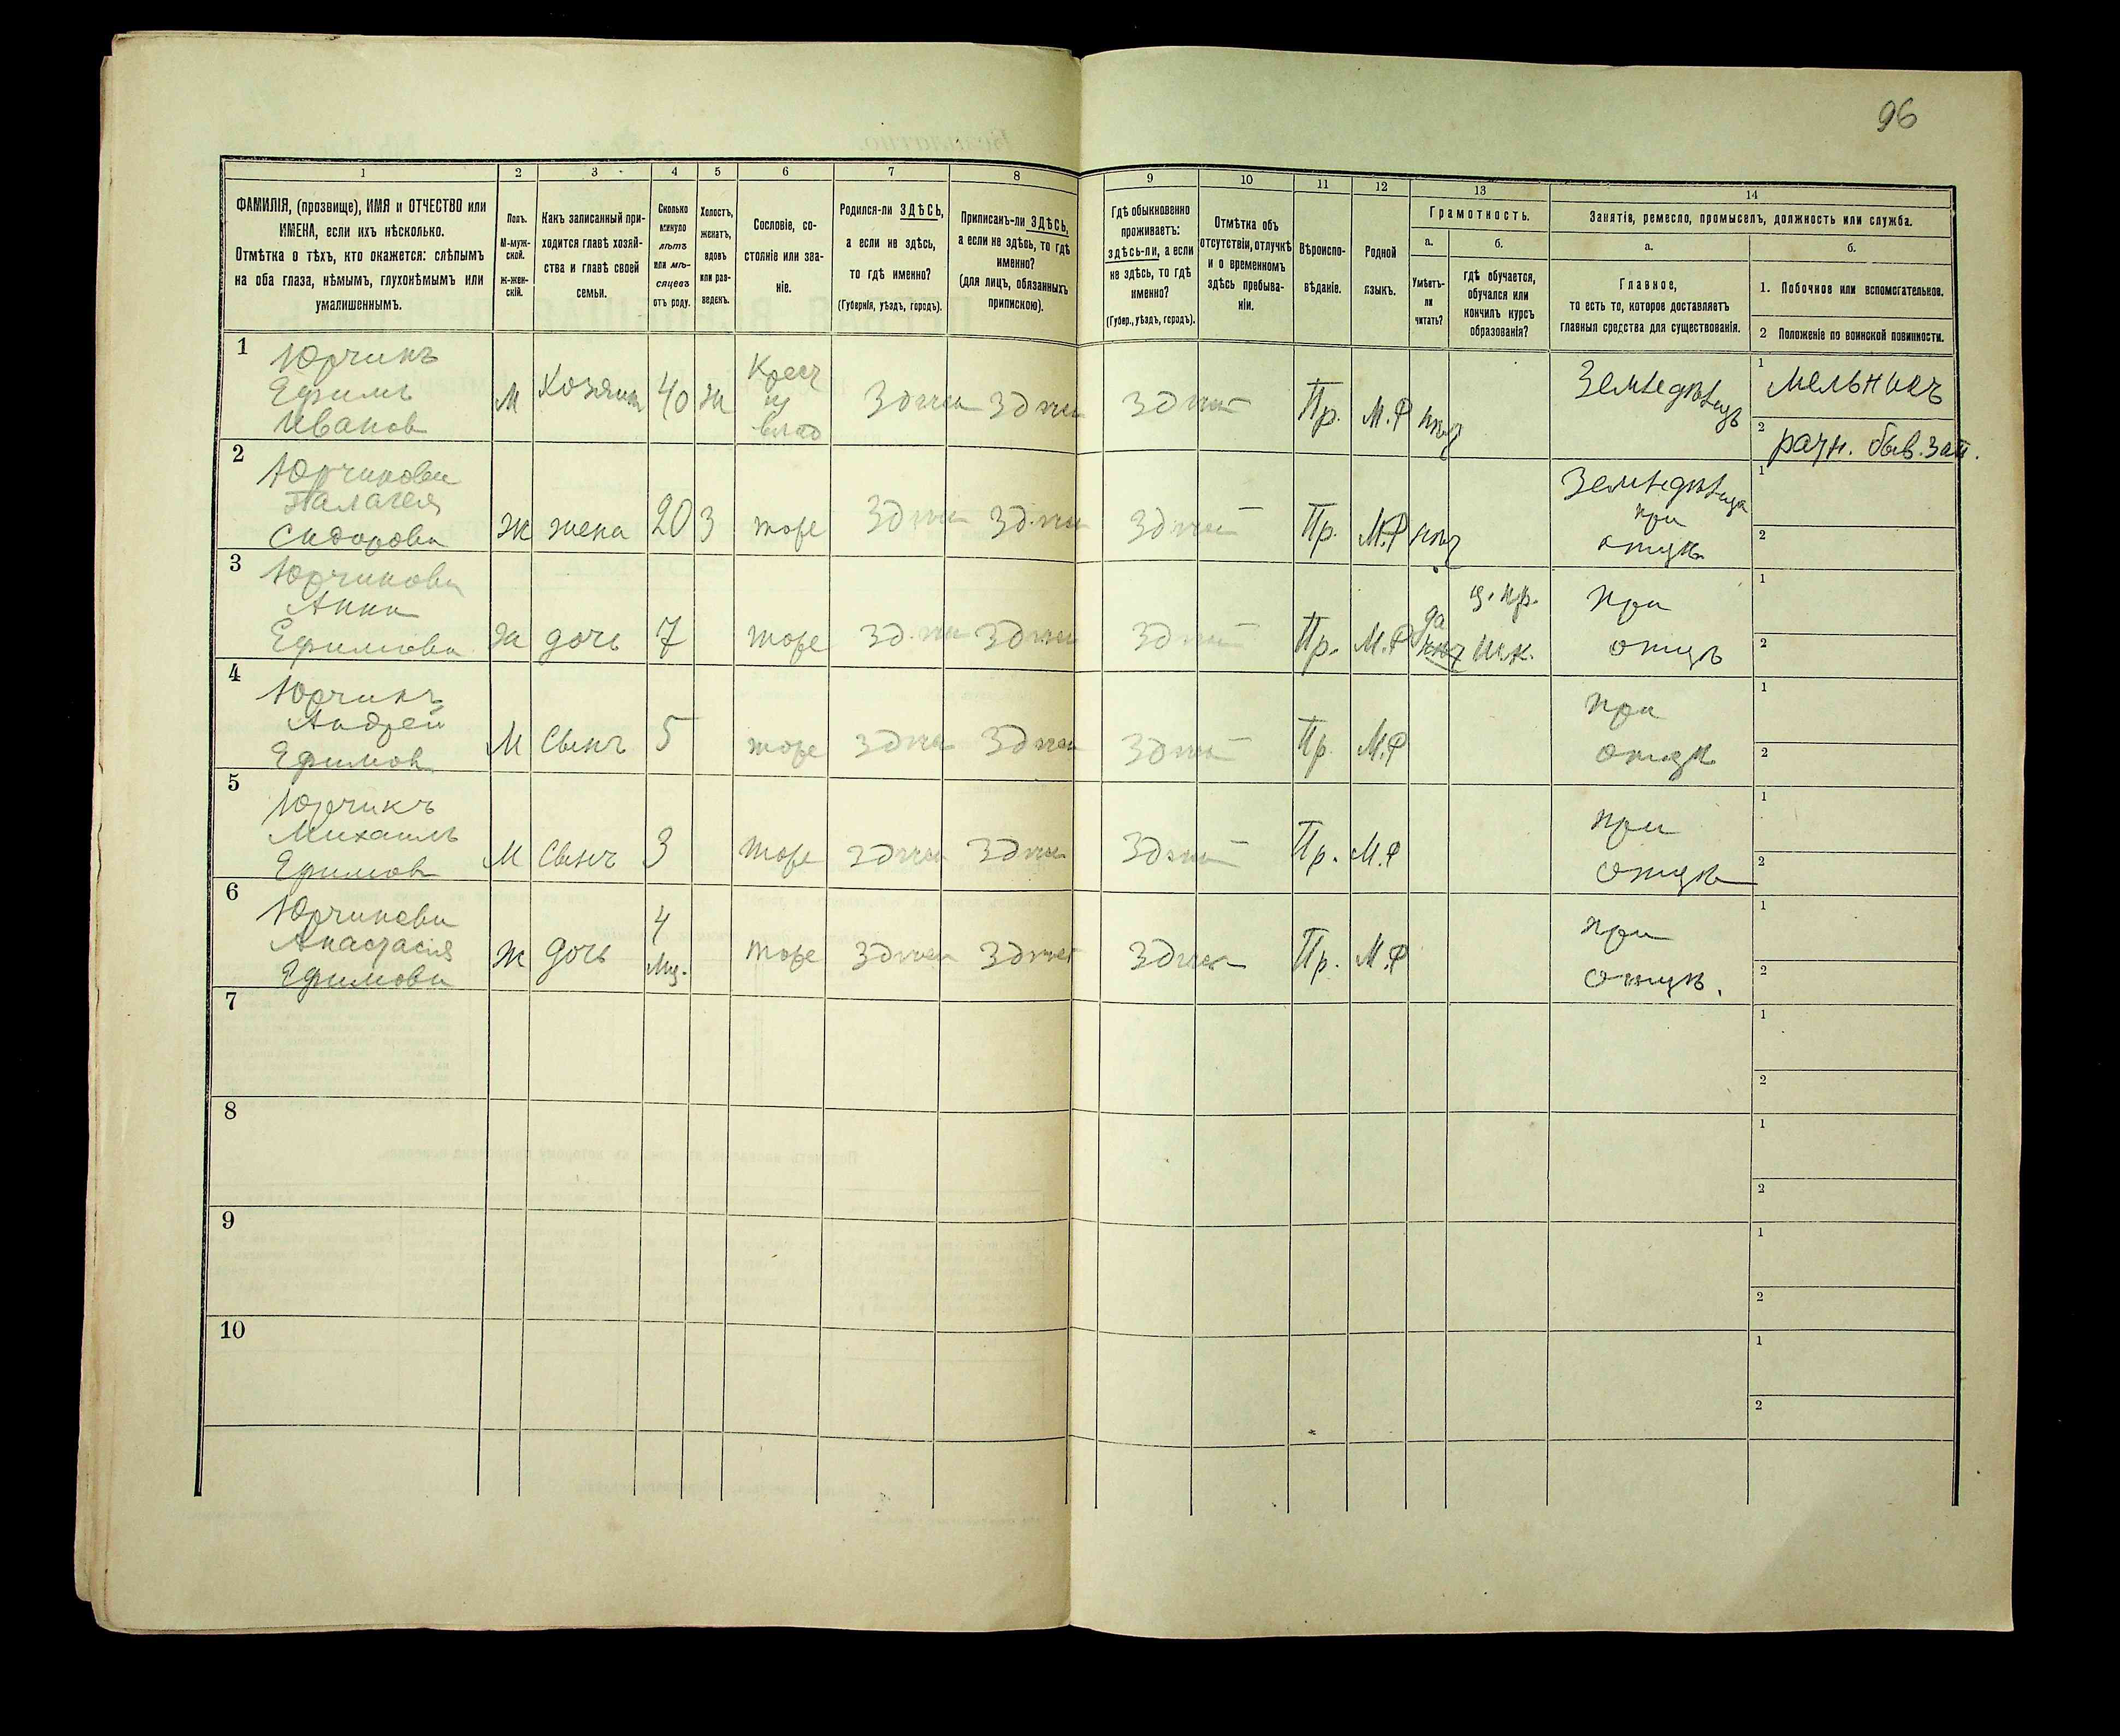 96
1 2 3 4 5 6 7 8 9 10 11 12 13 14
ФАМИЛІЯ, (прозвище), ИМЯ и ОТЧЕСТВО или
ИМЕНА, если ихъ нѣсколько.
Отмѣтка о тѣхъ, кто окажется: слѣпымъ
на оба глаза, нѣмымъ, глухонѣмымъ или
умалишеннымъ.
Полъ.
М-муж-
ской.
Ж-жен-
скій.
Какъ записанный при-
ходится главѣ хозяй-
ства и главѣ своей
семьи.
Сколько
минуло
лѣтъ
или мѣ-
сяцевъ
отъ роду.
Холостъ,
женатъ,
вдовъ
или раз-
веденъ.
Сословіе, со-
стояніе или зва-
ніе.
Родился-ли ЗДѢСЬ,
а если не здѣсь,
то гдѣ именно?
(Губернія, уѣздъ, городъ).
Приписанъ-ли ЗДѢСЬ,
а если не здѣсь, то гдѣ
именно?
(для лицъ, обязанныхъ
припискою).
Гдѣ обыкновенно
проживаетъ:
здѣсь-ли, а если
не здѣсь, то гдѣ
именно?
(Губер., уѣздъ, городъ).
Отмѣтка объ
отсутствіи, отлучкѣ
и о временномъ
здѣсь пребыва-
ніи.
Вѣроиспо-
вѣданіе.
Родной
языкъ.
Грамотность.
а.
Умѣетъ-
ли
читать?
б.
гдѣ обучается,
обучался или
кончилъ курсъ
образованія?
Занятія, ремесло, промыселъ, должность или служба.
а.
Главное,
то есть то, которое доставляетъ
главныя средства для существованія.
б.
1. Побочное или вспомогательное.
2 Положеніе по воинской повинности.
1
Юрчикъ
Ефимъ
Иванов
М
Хозяин
40
ж
Крест
из
влад
Здѣсь
Здѣсь
Здѣсь
Пр.
М.Р
нѣт
Земледѣлецъ
1 мельникъ
2 ратн. быв. зап.
2
Юрчикова
Палагея
Сидорова
ж
жена
20
З
тоже
Здѣсь
Здѣсь
Здѣсь
Пр.
М.Р
нѣт
Земледѣлица
при
отцѣ
1
2
3
Юрчикова
Анна
Ефимова
ж
дочь
7
тоже
Здѣсь
Здѣсь
Здѣсь
Пр.
М.Р
да
нѣт
ц. пр.
шк.
при
отцѣ
1
2
4
Юрчикъ
Андрей
Ефимов
М
Сынъ
5
тоже
Здѣсь
Здѣсь
Здѣсь
Пр.
М.Р
при
отцѣ
1
2
5
Юрчикъ
Михаилъ
Ефимов
М
Сынъ
3
тоже
Здѣсь
Здѣсь
Здѣсь
Пр.
М.Р
при
отцѣ
1
2
6
Юрчикова
Анастасія
Ефимова
ж
дочь
4
Мц.
тоже
Здѣсь
Здѣсь
Здѣсь
Пр.
М.Р
при
отцѣ.
1
2
7
1
2
8
1
2
9
1
2
10
1
2